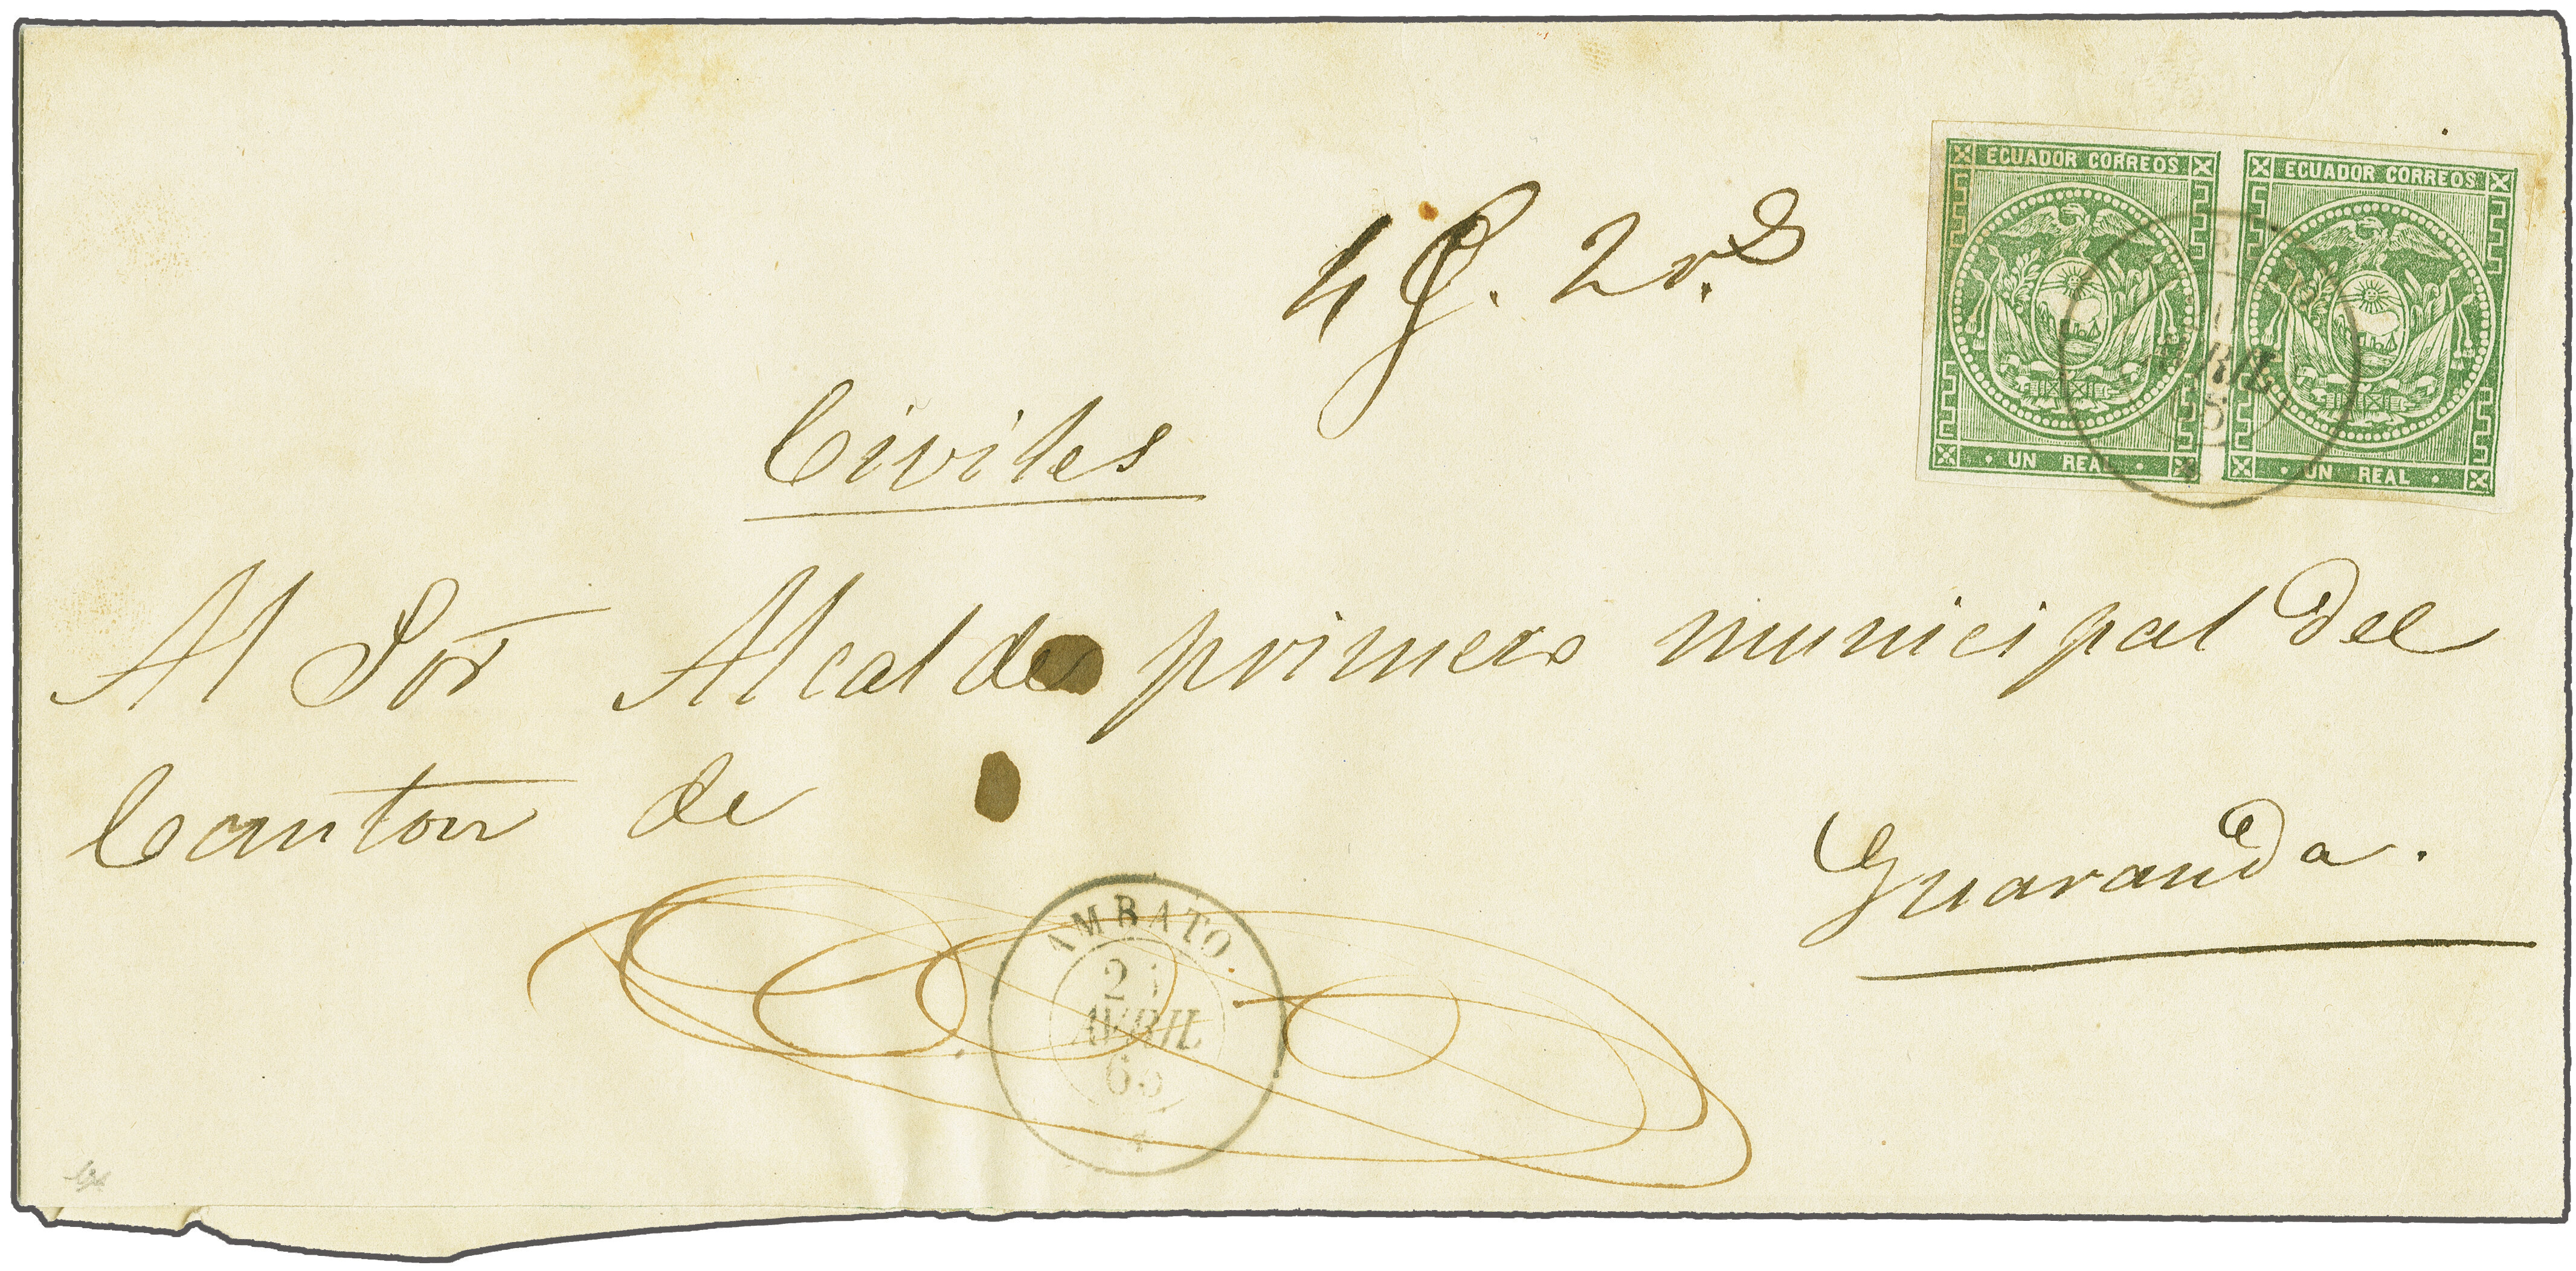 ECUADOR CORREOS ECUADOR CORREOS
UN REAL UN REAL
2 r.s
Civiles
Al Sor Alcalde primero municipal del
Canton de
Guaranda.
AMBATO.
AVRIL